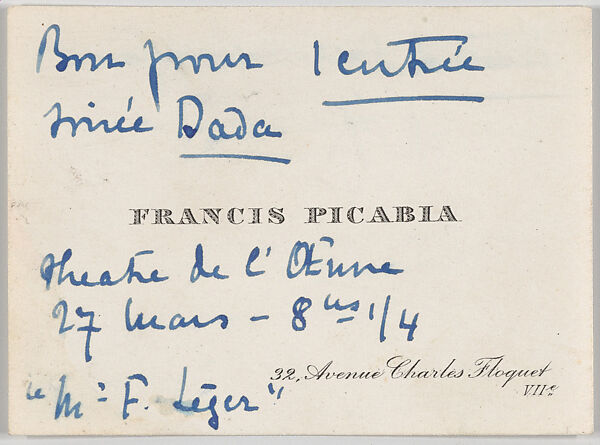 Bon pour 1 entrée
soirée Dada
FRANCIS PICABIA
theatre de l'Œuvre
27 Mars – 8 hes 1/4
32, Avenue Charles Floquet
VIIe
"Mr F. Léger"